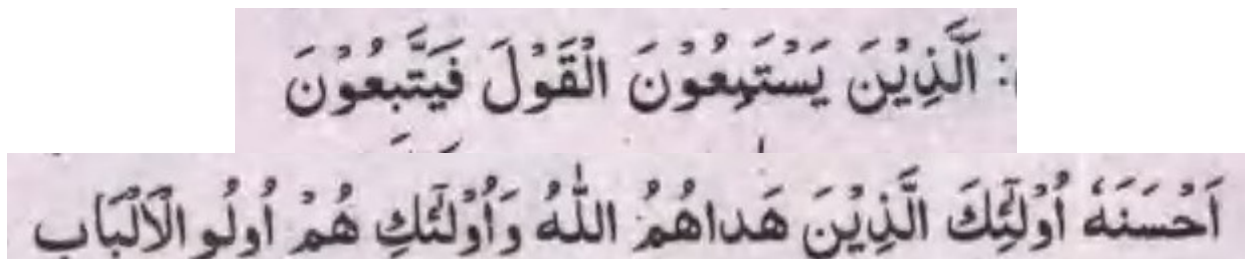 : اَلَّذِيْنَ يَسْتَمِعُوْنَ الْقَوْلَ فَيَتَّبِعُوْنَ
اَحْسَنَهٗ اُوْلَٓئِكَ الَّذِيْنَ هَداهُمُ اللّٰهُ وَاُوْلَٓئِكِ هُمْ اُولُو الْاَلْبَابِ